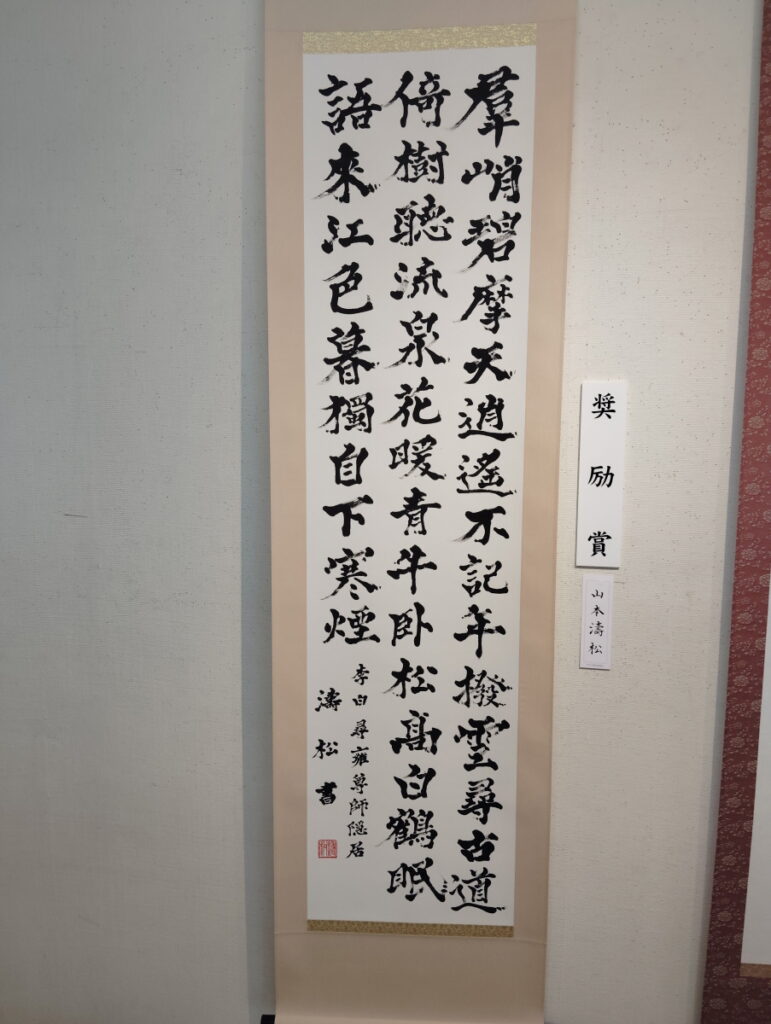 羣峭碧摩天逍遙不記年撥雲尋古道
倚樹聽流泉花暖青牛臥松高白鶴眠
語來江色暮獨自下寒煙
李白尋雍尊師隱居
濤松書
奨励賞
山本濤松